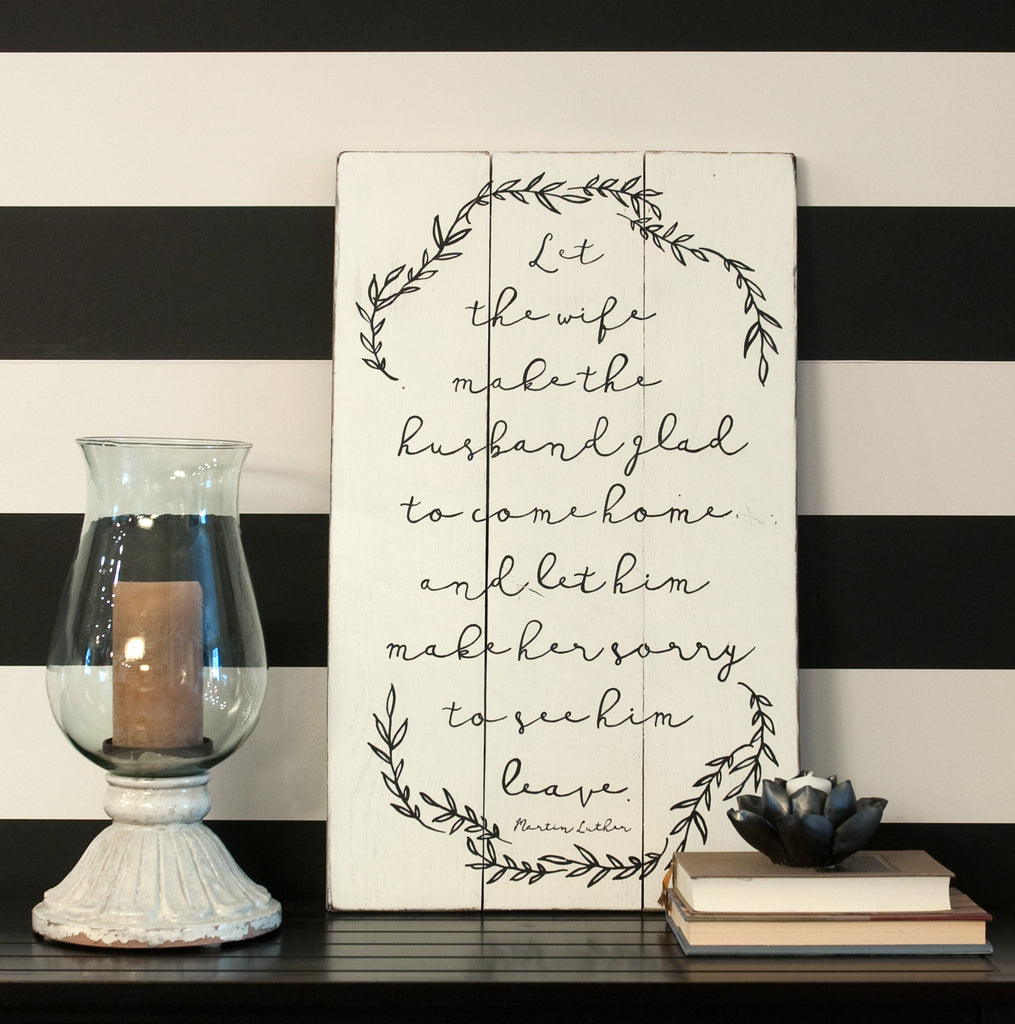 Let
the wife
make the
husband glad
to come home
and let him
make her sorry
to see him
leave.
Martin Luther